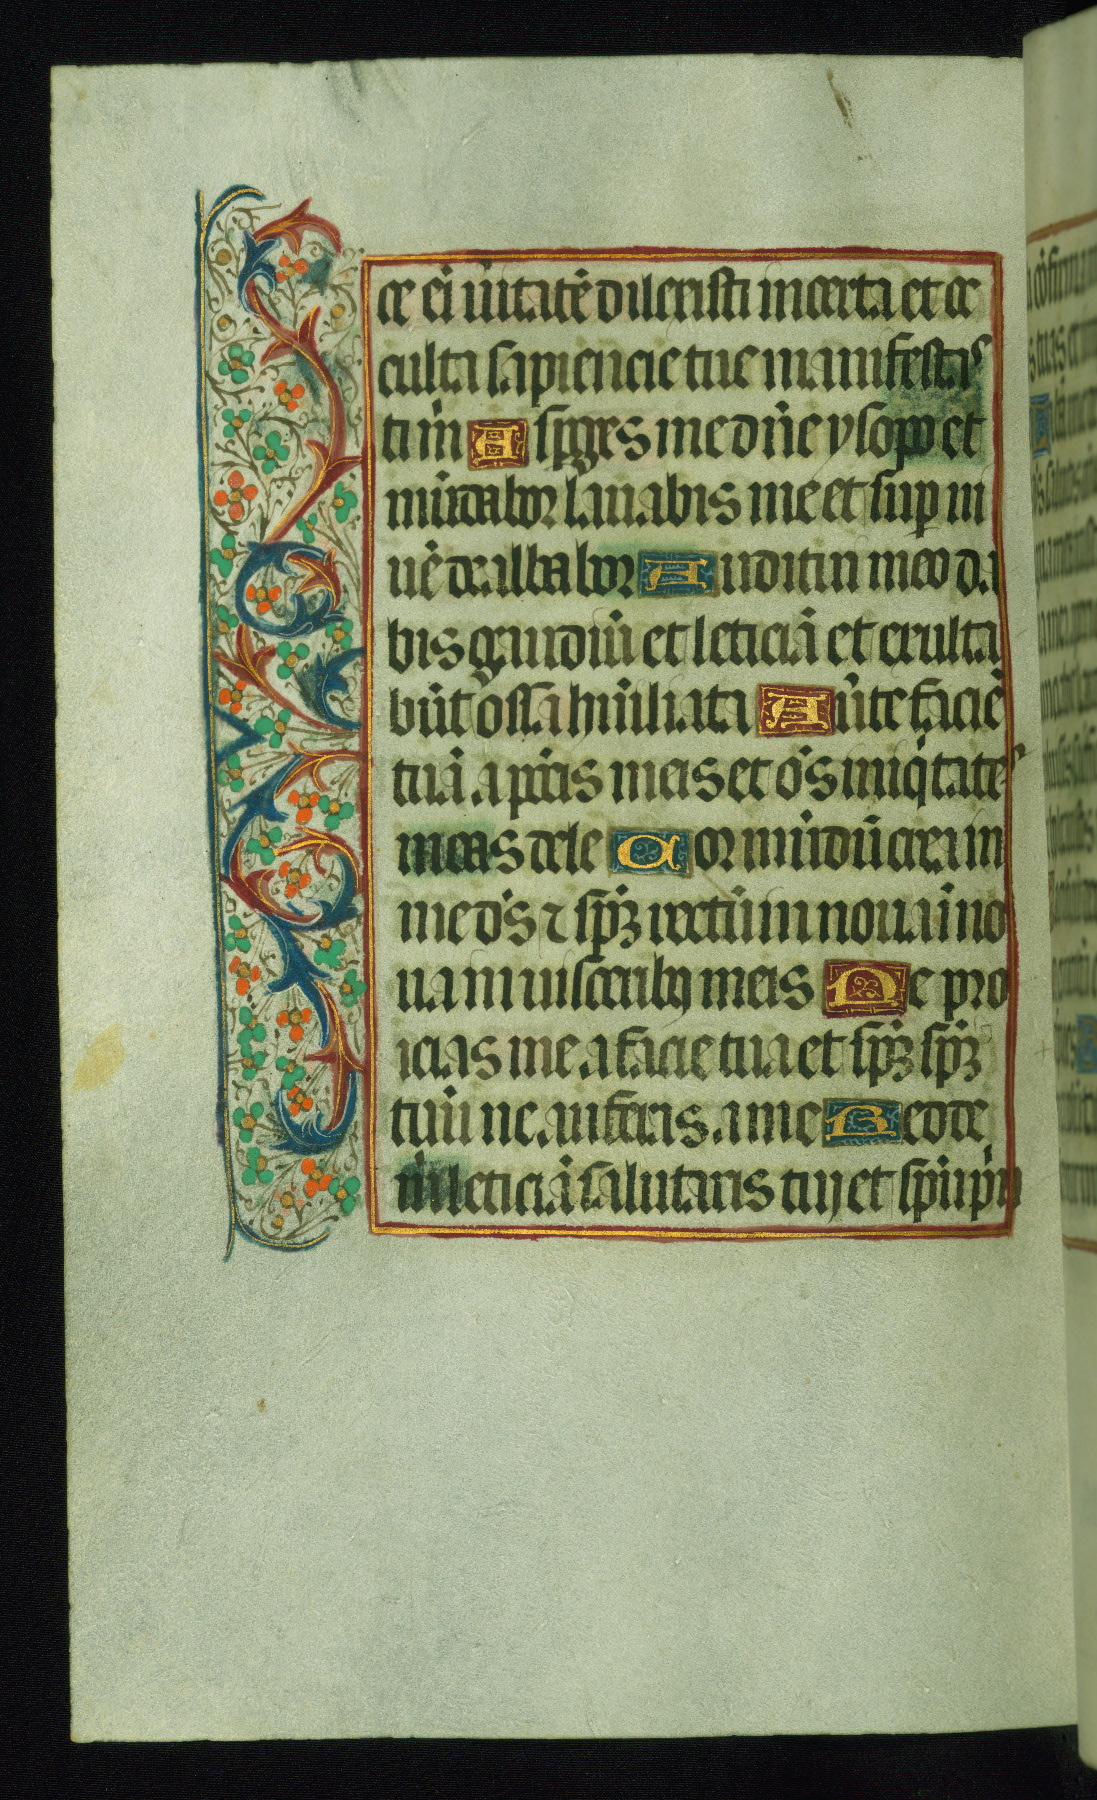 ce em̄ ūitatē dilexisti incerta et oc
culta sapiencie tue manifestas
ti m̄ Asperges me dn̄e ysopo et
mūdabor lauabis me et sup ni
uē dealbabor Auditui meo da
bis gaudiū et leticiā et exulta
būt ossa hūiliata Auerte faciē
tuā a pctīs meis et oēs iniqitates
meas dele Cor mūdū crea in
me ds̄ ⁊ spm̄ rectū in noua in
uisceribȝ meis Ne pro
icias me a facie tua et spm̄ scm̄
tuū ne auferas a me Redde
m̄ leticiā salutaris tui et spū pn